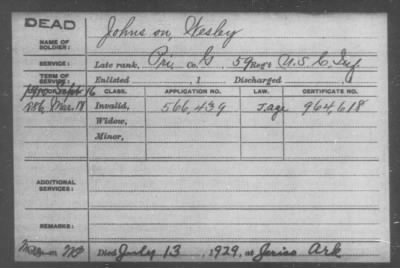 DEAD
NAME OF SOLDIER: Johnson, Wesley
SERVICE: Late rank, Pri, Co. G, 59 Reg't U.S.C. Inf
TERM OF SERVICE: Enlisted , 1 Discharged , 1
CLASS. APPLICATION NO. LAW. CERTIFICATE NO.
Mar. Invalid, 566,439 J. age 964,618
Widow,
Minor,
ADDITIONAL SERVICES:
REMARKS:
Died July 13, 1929, at Jerico Ark